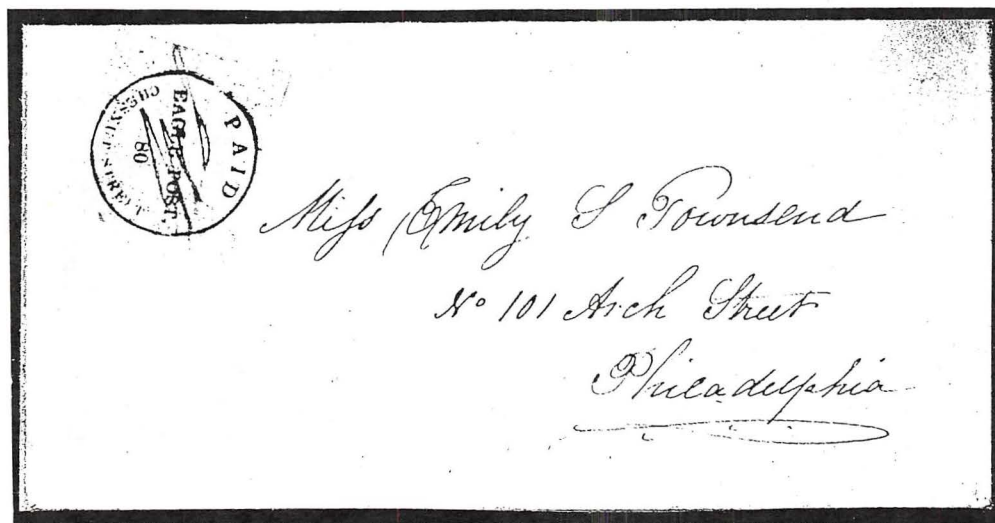 PAID
EAGLE POST.
80
CHESNUT STREET
Miss Emily S Townsend
No 101 Arch Street
Philadelphia